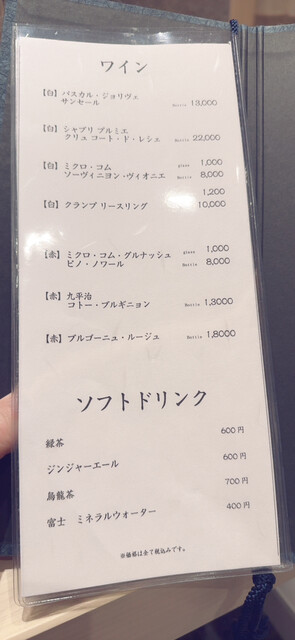 ワイン
【白】パスカル・ジョリヴェ
サンセール Bottle 13,000
【白】シャブリ プルミエ
クリュ コート・ド・レシェ Bottle 22,000
【白】ミクロ・コム glass 1,000
ソーヴィニヨン・ヴィオニエ Bottle 8,000
1,200
【白】クランプ リースリング 10,000
【赤】ミクロ・コム・グルナッシュ glass 1,000
ピノ・ノワール Bottle 8,000
【赤】九平治
コトー・ブルギニョン Bottle 1,3000
【赤】ブルゴーニュ・ルージュ Bottle 1,8000
ソフトドリンク
緑茶 600円
ジンジャーエール 600円
烏龍茶 700円
富士 ミネラルウォーター 400円
※価格は全て税込みです。